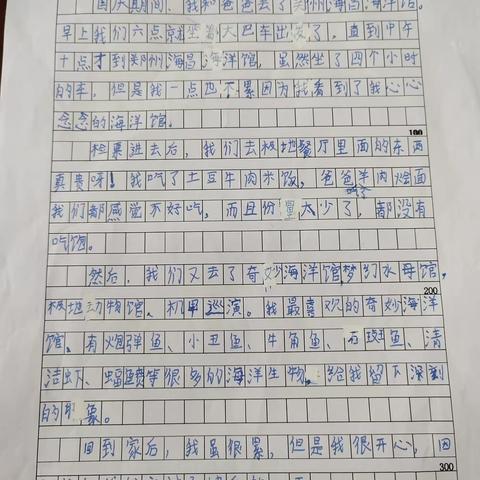 国庆期间，我和爸爸去了郑州海昌海洋馆。
早上我们六点就坐着大巴车出发了，直到中午
十点才到郑州海昌海洋馆，虽然坐了四个小时
的车，但是我一点也不累因为我看到了我心心
念念的海洋馆。
100
检票进去后，我们去极地餐厅里面的东西
真贵呀！我吃了土豆牛肉米饭，爸爸吃了羊肉烩面
我们都感觉不好吃，而且份量太少了，都没有
吃饱。
然后，我们又去了奇妙海洋馆，梦幻水母馆，
200
极地动物馆、机甲巡演。我最喜欢的奇妙海洋
馆、有炮弹鱼、小丑鱼、牛角鱼、石斑鱼、清
洁虾、蝠鲼等很多的海洋生物，给我留下深刻
的印象。
回到家后，我虽很累，但是我很开心，因
300